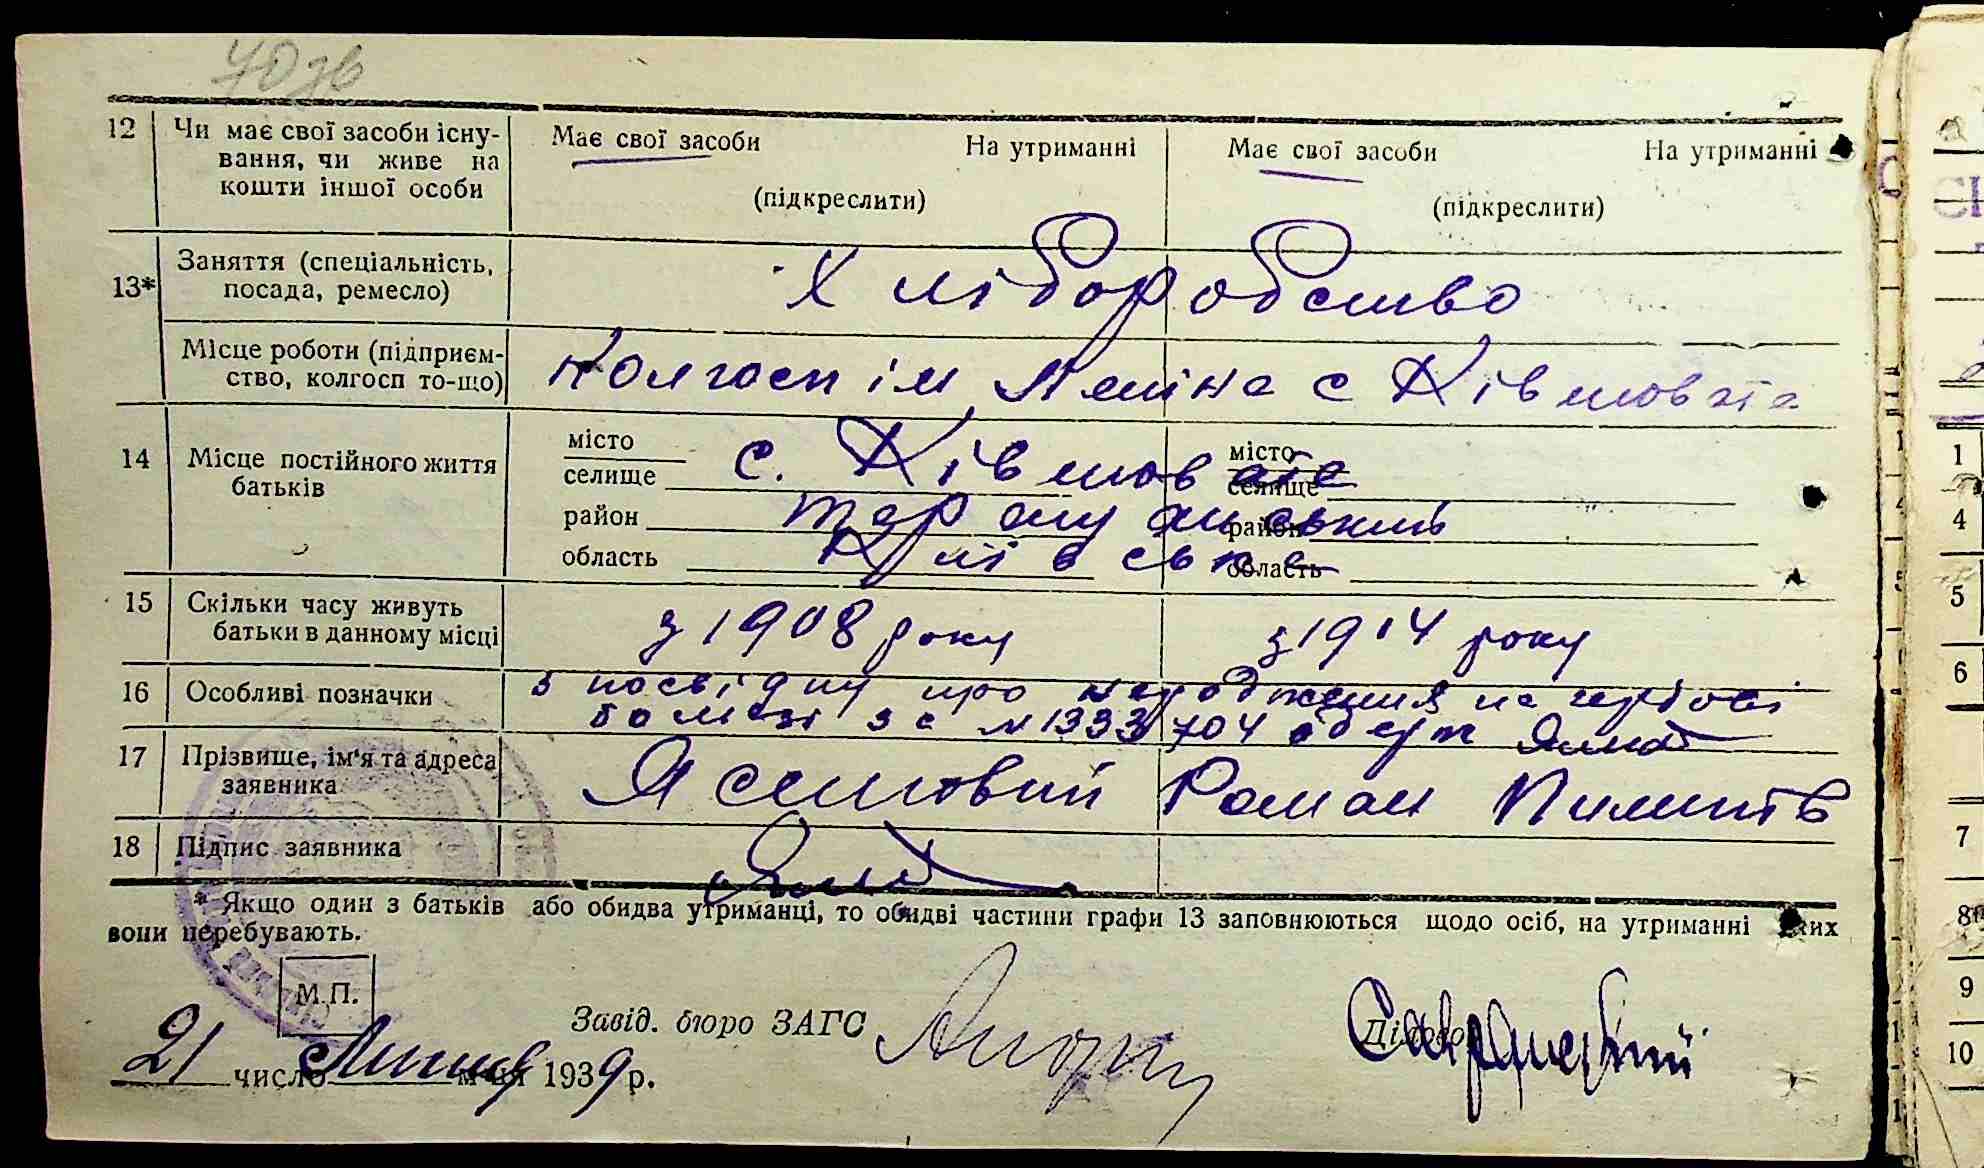 12 Чи має свої засоби існу-
вання, чи живе на
кошти іншої особи
Має свої засоби На утриманні Має свої засоби На утриманні
(підкреслити) (підкреслити)
13* Заняття (спеціальність,
посада, ремесло)
Хліборобство
Місце роботи (підприєм-
ство, колгосп то-що)
Колгосп ім Леніна с Ківшовата
14 Місце постійного життя
батьків
місто місто
селище с. Ківшовата селище
район район
область Київська область
15 Скільки часу живуть
батьки в данному місці
з 1908 року з 1914 року
16 Особливі позначки
про народження на
за № 1333704
17 Прізвище, ім'я та адреса
заявника
Ясеновий Роман
18 Підпис заявника
* Якщо один з батьків або обидва утриманці, то обидві частини графи 13 заповнюються щодо осіб, на утриманні яких
вони перебувають.
М.П.
Завід. бюро ЗАГС Діловод
21 число Липня м-ця 1939 р.
1
4
5
6
7
8
9
10